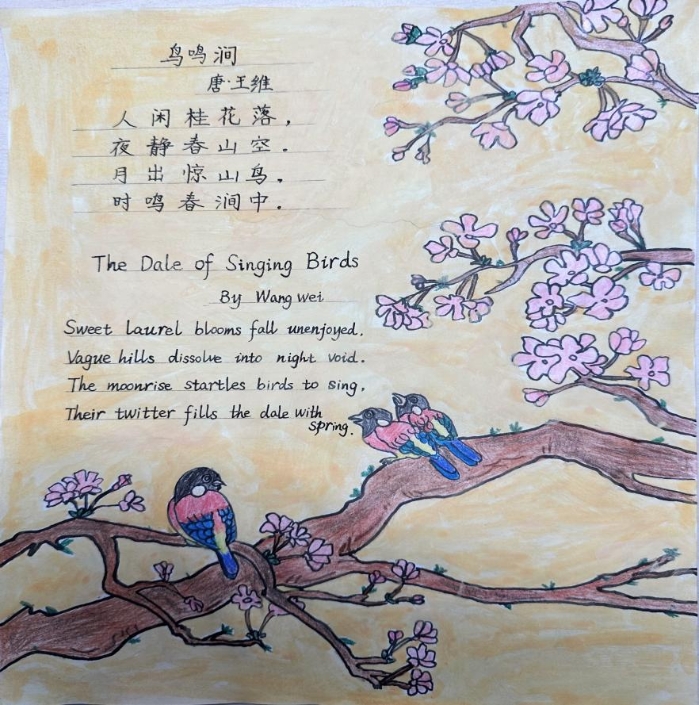 鸟鸣涧
唐·王维
人闲桂花落，
夜静春山空.
月出惊山鸟.
时鸣春涧中.
The Dale of Singing Birds
By Wang wei
Sweet laurel blooms fall unenjoyed.
Vague hills dissolve into night void.
The moonrise startles birds to sing.
Their twitter fills the dale with
spring.